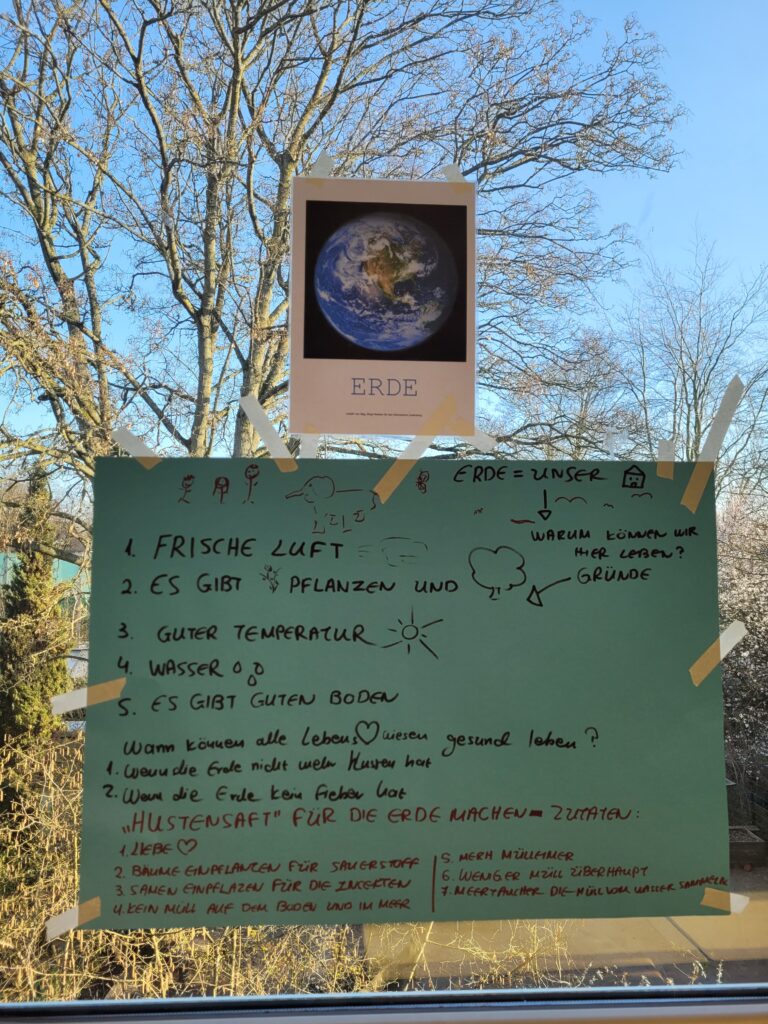 ERDE
ERDE = UNSER
WARUM KÖNNEN WIR
HIER LEBEN?
GRÜNDE
1. FRISCHE LUFT
2. ES GIBT PFLANZEN UND
3. GUTER TEMPERATUR
4. WASSER
5. ES GIBT GUTEN BODEN
Wann können alle Lebens♡wiesen gesund leben?
1. Wenn die Erde nicht mehr Husten hat
2. Wenn die Erde kein Fieber hat
„HUSTENSAFT" FÜR DIE ERDE MACHEN = ZUTATEN:
1. LIEBE ♡
2. BÄUME EINPFLANZEN FÜR SAUERSTOFF
3. SAMEN EINPFLAZEN FÜR DIE INSEKTEN
4. KEIN MÜLL AUF DEM BODEN UND IM MEER
5. MERH MÜLLEIMER
6. WENIGER MÜLL ÜBERHAUPT
7. MEERTAUCHER DIE MÜLL VOM WASSER SAMMELN